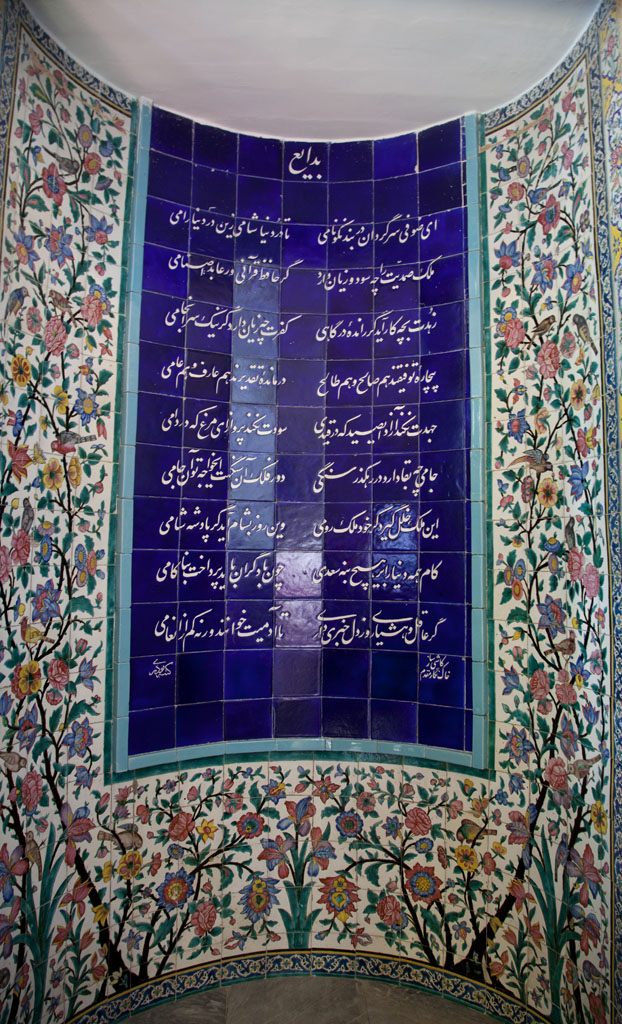 بدایع
ای صوفی سرگردان در بند نکونامی تا درد نیاشامی زین درد نیارامی
ملک صمدیت را چه سود و زیان دارد گر حافظ قرآنی ور عابد اصنامی
زهدت بچه کار آید گر رانده درگاهی کفرت چه زیان دارد گر نیک سرانجامی
بیچاره توفیقند هم صالح و هم طالح درمانده تقدیرند هم عارف و هم عامی
جهدت نکند آزاد ای صید که در قیدی سودت نکند پرواز ای مرغ که در دامی
جامی چه بقا دارد در رهگذر سنگی دور فلک آن سنگست ای خواجه تو آن جامی
این ملک خلل گیرد گر خود ملک رومی وین روز بشام آید گر پادشه شامی
کام همه دنیا را بر هیچ منه سعدی چون با دگران باید پرداخت بناکامی
گر عاقل و هشیاری وز دل خبری داری تا آدمیت خوانند ورنه کم از انعامی
کاشی از
خاک نگار مقدم